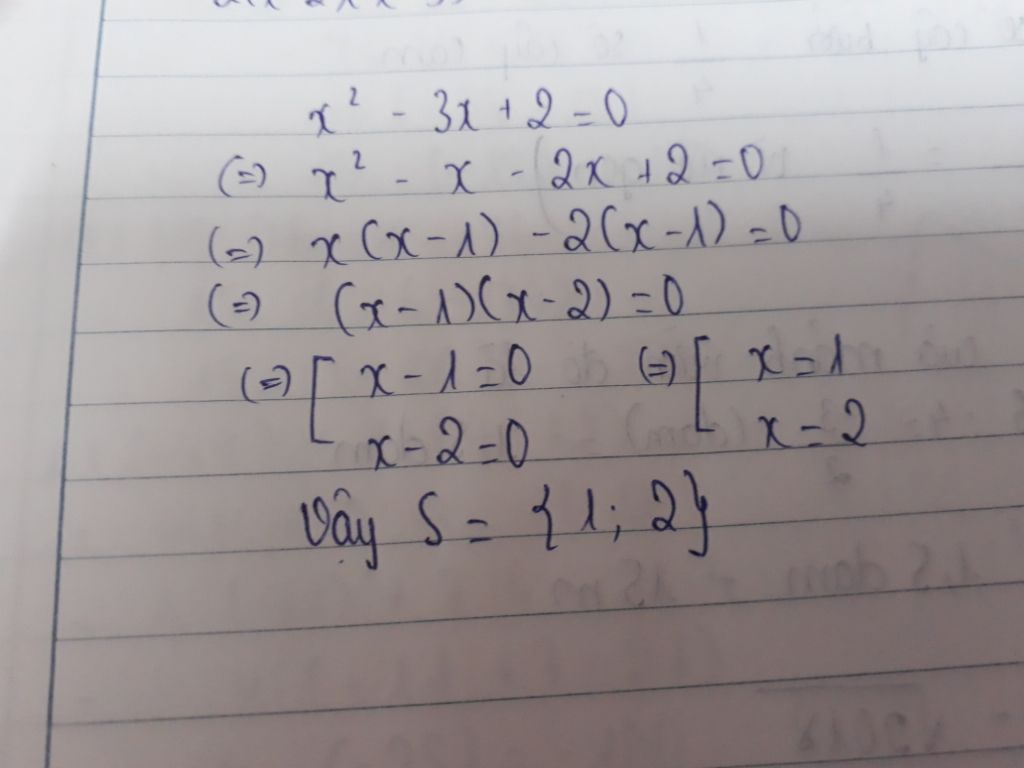 x² - 3x + 2 = 0
(=) x² - x - 2x + 2 = 0
(=) x(x - 1) - 2(x - 1) = 0
(=) (x - 1)(x - 2) = 0
(=) [ x - 1 = 0 (=) [ x = 1
x - 2 = 0 x = 2
Vậy S = {1; 2}